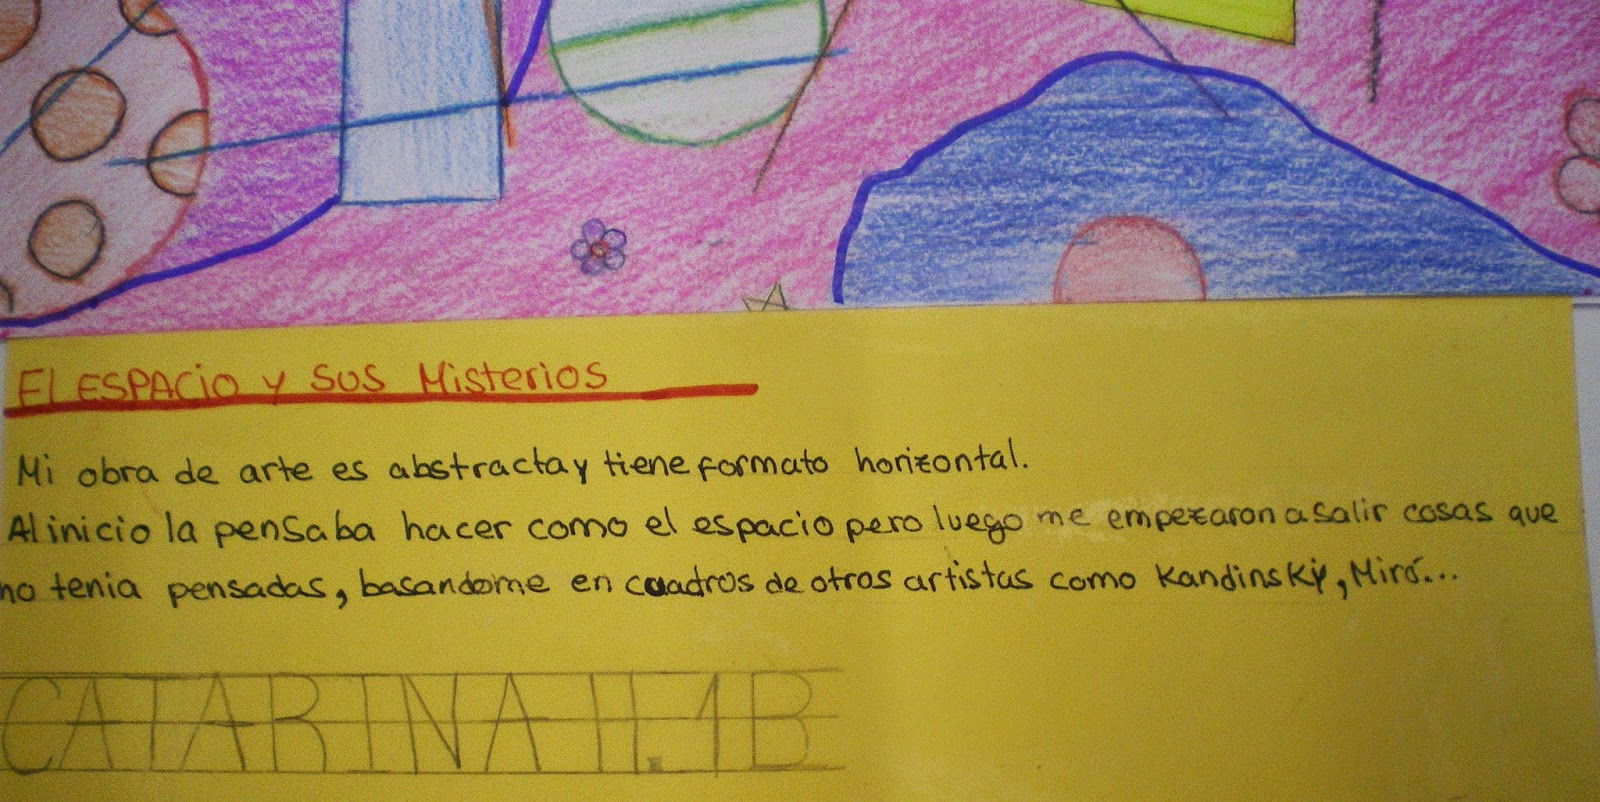 El ESPACIO y SUS Misterios
Mi obra de arte es abstracta y tiene formato horizontal.
Al inicio la pensaba hacer como el espacio pero luego me empezaron a salir cosas que
no tenia pensadas, basandome en cuadros de otros artistas como Kandinsky, Miró...
CATARINA H. 1B